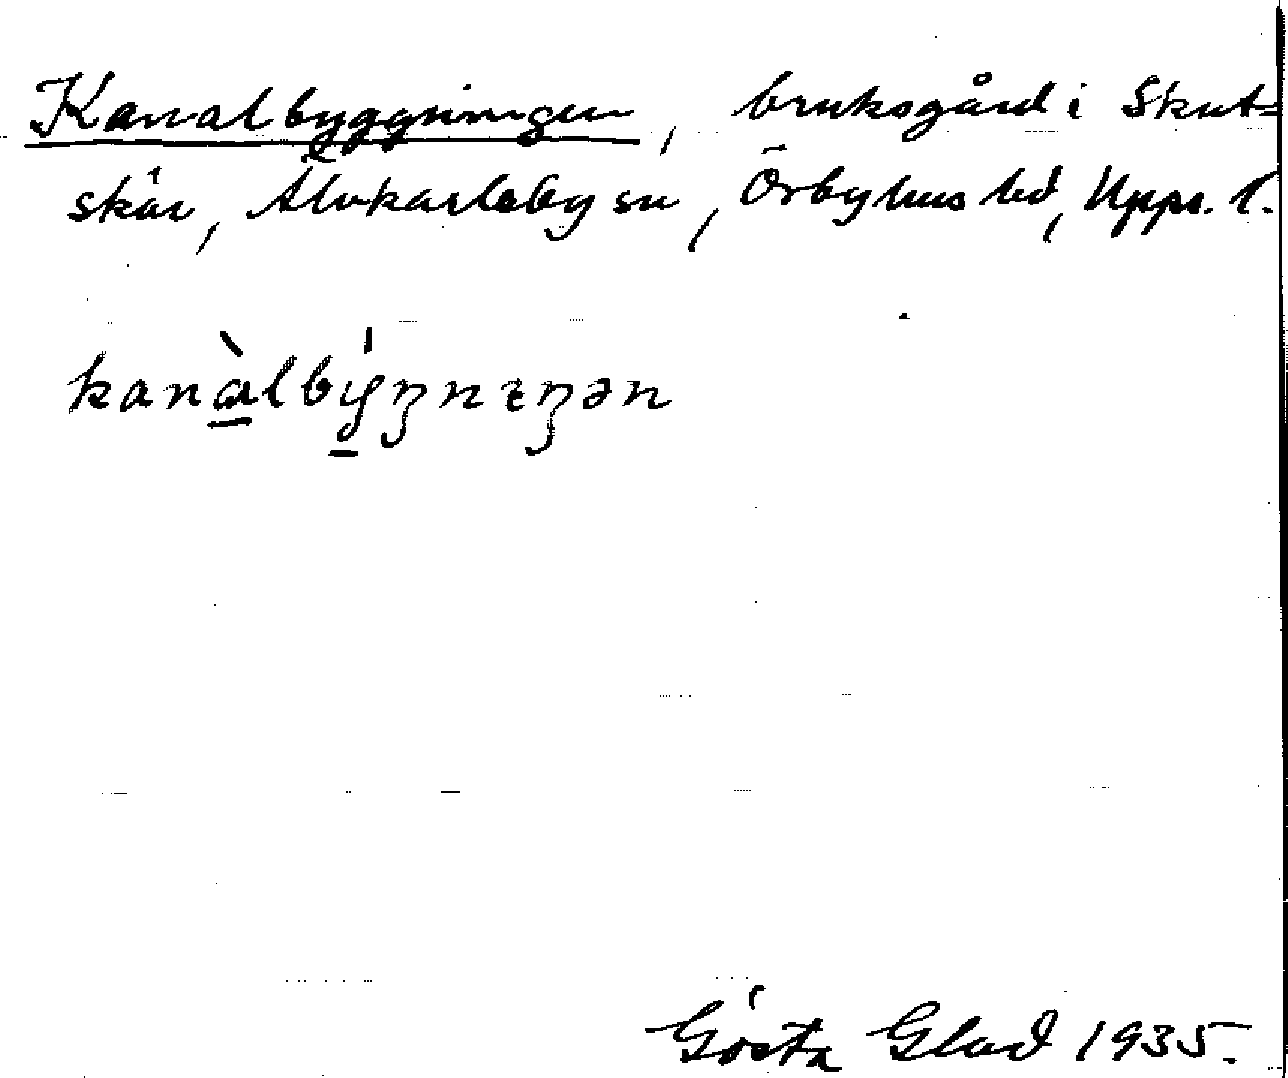 Kanalbyggningen, bruksgård i Skut-
skär, Älvkarleby sn, Örbyhus hd, Upps. l.
kanàlbýŋnɪŋən
Gösta Glad 1935.